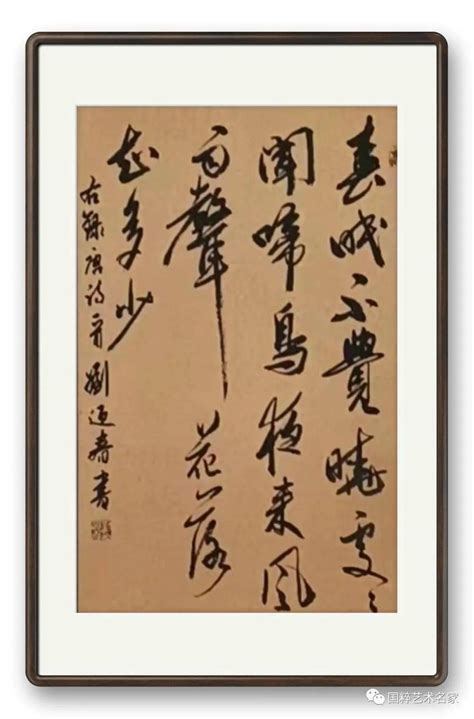 春眠不覺曉處々
聞啼鳥夜来風
雨聲花落
知多少
右録唐詩一首劉迎春書
国粹艺术名家